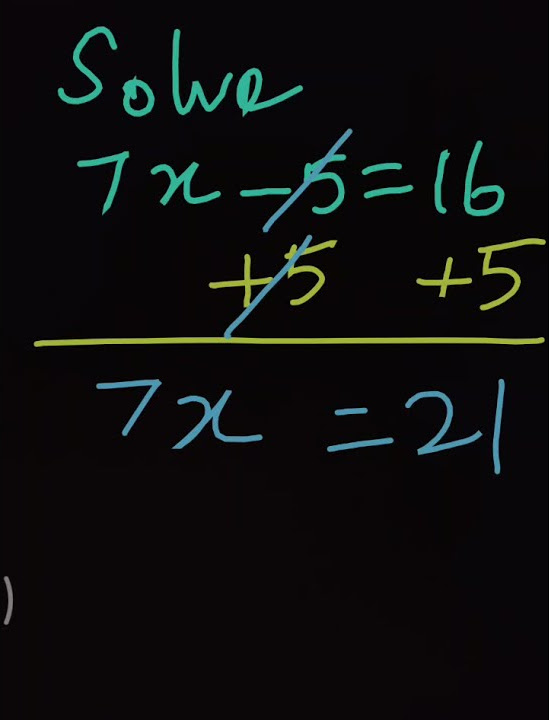 Solve
7x - 5 = 16
+5 +5
7x = 21
)